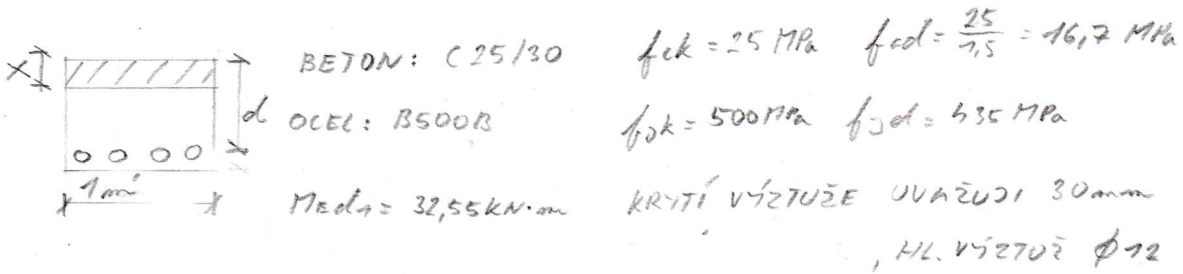 BETON: C25/30 fck = 25 MPa fcd = 25/1,5 = 16,7 MPa
X d
OCEL: B500B fyk = 500 MPa fyd = 435 MPa
1m'
MEd1 = 32,55 kN·m KRYTÍ VÝZTUŽE UVAŽUJI 30mm
, HL. VÝZTUŽ ϕ12